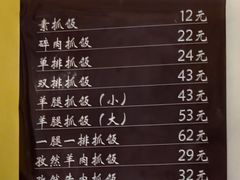 素抓饭 12元
碎肉抓饭 22元
单排抓饭 24元
双排抓饭 43元
羊腿抓饭（小） 43元
羊腿抓饭（大） 53元
一腿一排抓饭 62元
孜然羊肉抓饭 29元
孜然牛肉抓饭 32元